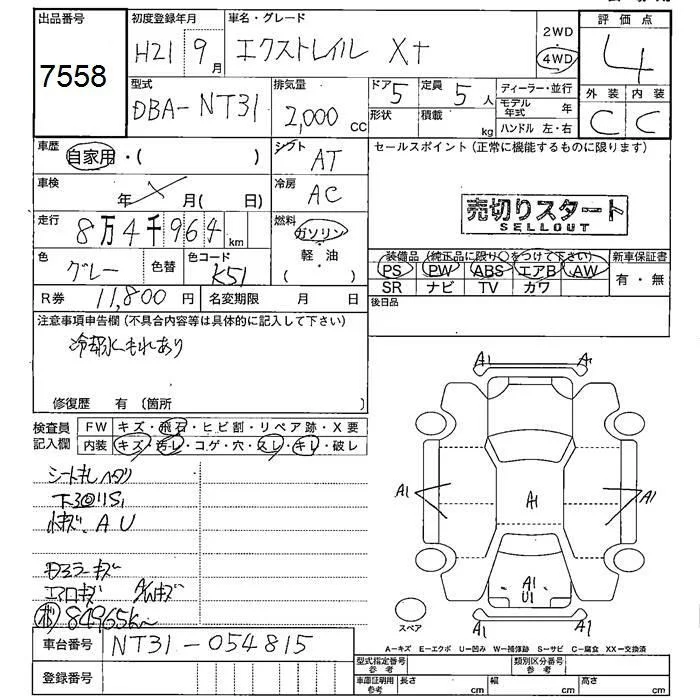 出品番号 初度登録年月 車名・グレード 評価点
7558
H21 9月 エクストレイル X+ 2WD 4WD 4
型式 排気量 ドア 定員 ディーラー・並行 外装 内装
DBA-NT31 2,000cc 5 5人 モデル年式 年 C C
形状 積載 kg ハンドル 左・右
車歴 自家用・( ) シフト AT セールスポイント(正常に機能するものに限ります)
車検 年 月( 日) 冷房 AC
売切りスタート
SELLOUT
走行 8万4千964km 燃料 ガソリン 軽・油 ( )
色 グレー 色替 色コード K51
装備品(純正品に限り○をつけて下さい) 新車保証書
PS PW ABS エアB AW 有・無
SR ナビ TV カワ
R券 11,800円 名変期限 月 日 後日品
注意事項申告欄(不具合内容等は具体的に記入して下さい)
冷却水もれあり
修復歴 有 〔箇所 〕
検査員記入欄 FW キズ・飛石・ヒビ割・リペア跡・X要
内装 キズ・汚レ・コゲ・穴・スレ・キレ・破レ
A1 A
A1 A1 A1
A1
U1
A1 A1
シートキレ ヘタリ
AU
ドアミラーキズ
エアロキズ AWキズ
84965km
スペア
A-キズ E-エクボ U-凹み W-補修跡 S-サビ C-腐食 XX-交換済
車台番号 NT31-054815
登録番号
型式指定番号 参考 類別区分番号 参考
車庫証明用 参考 長さ cm 幅 cm 高さ cm